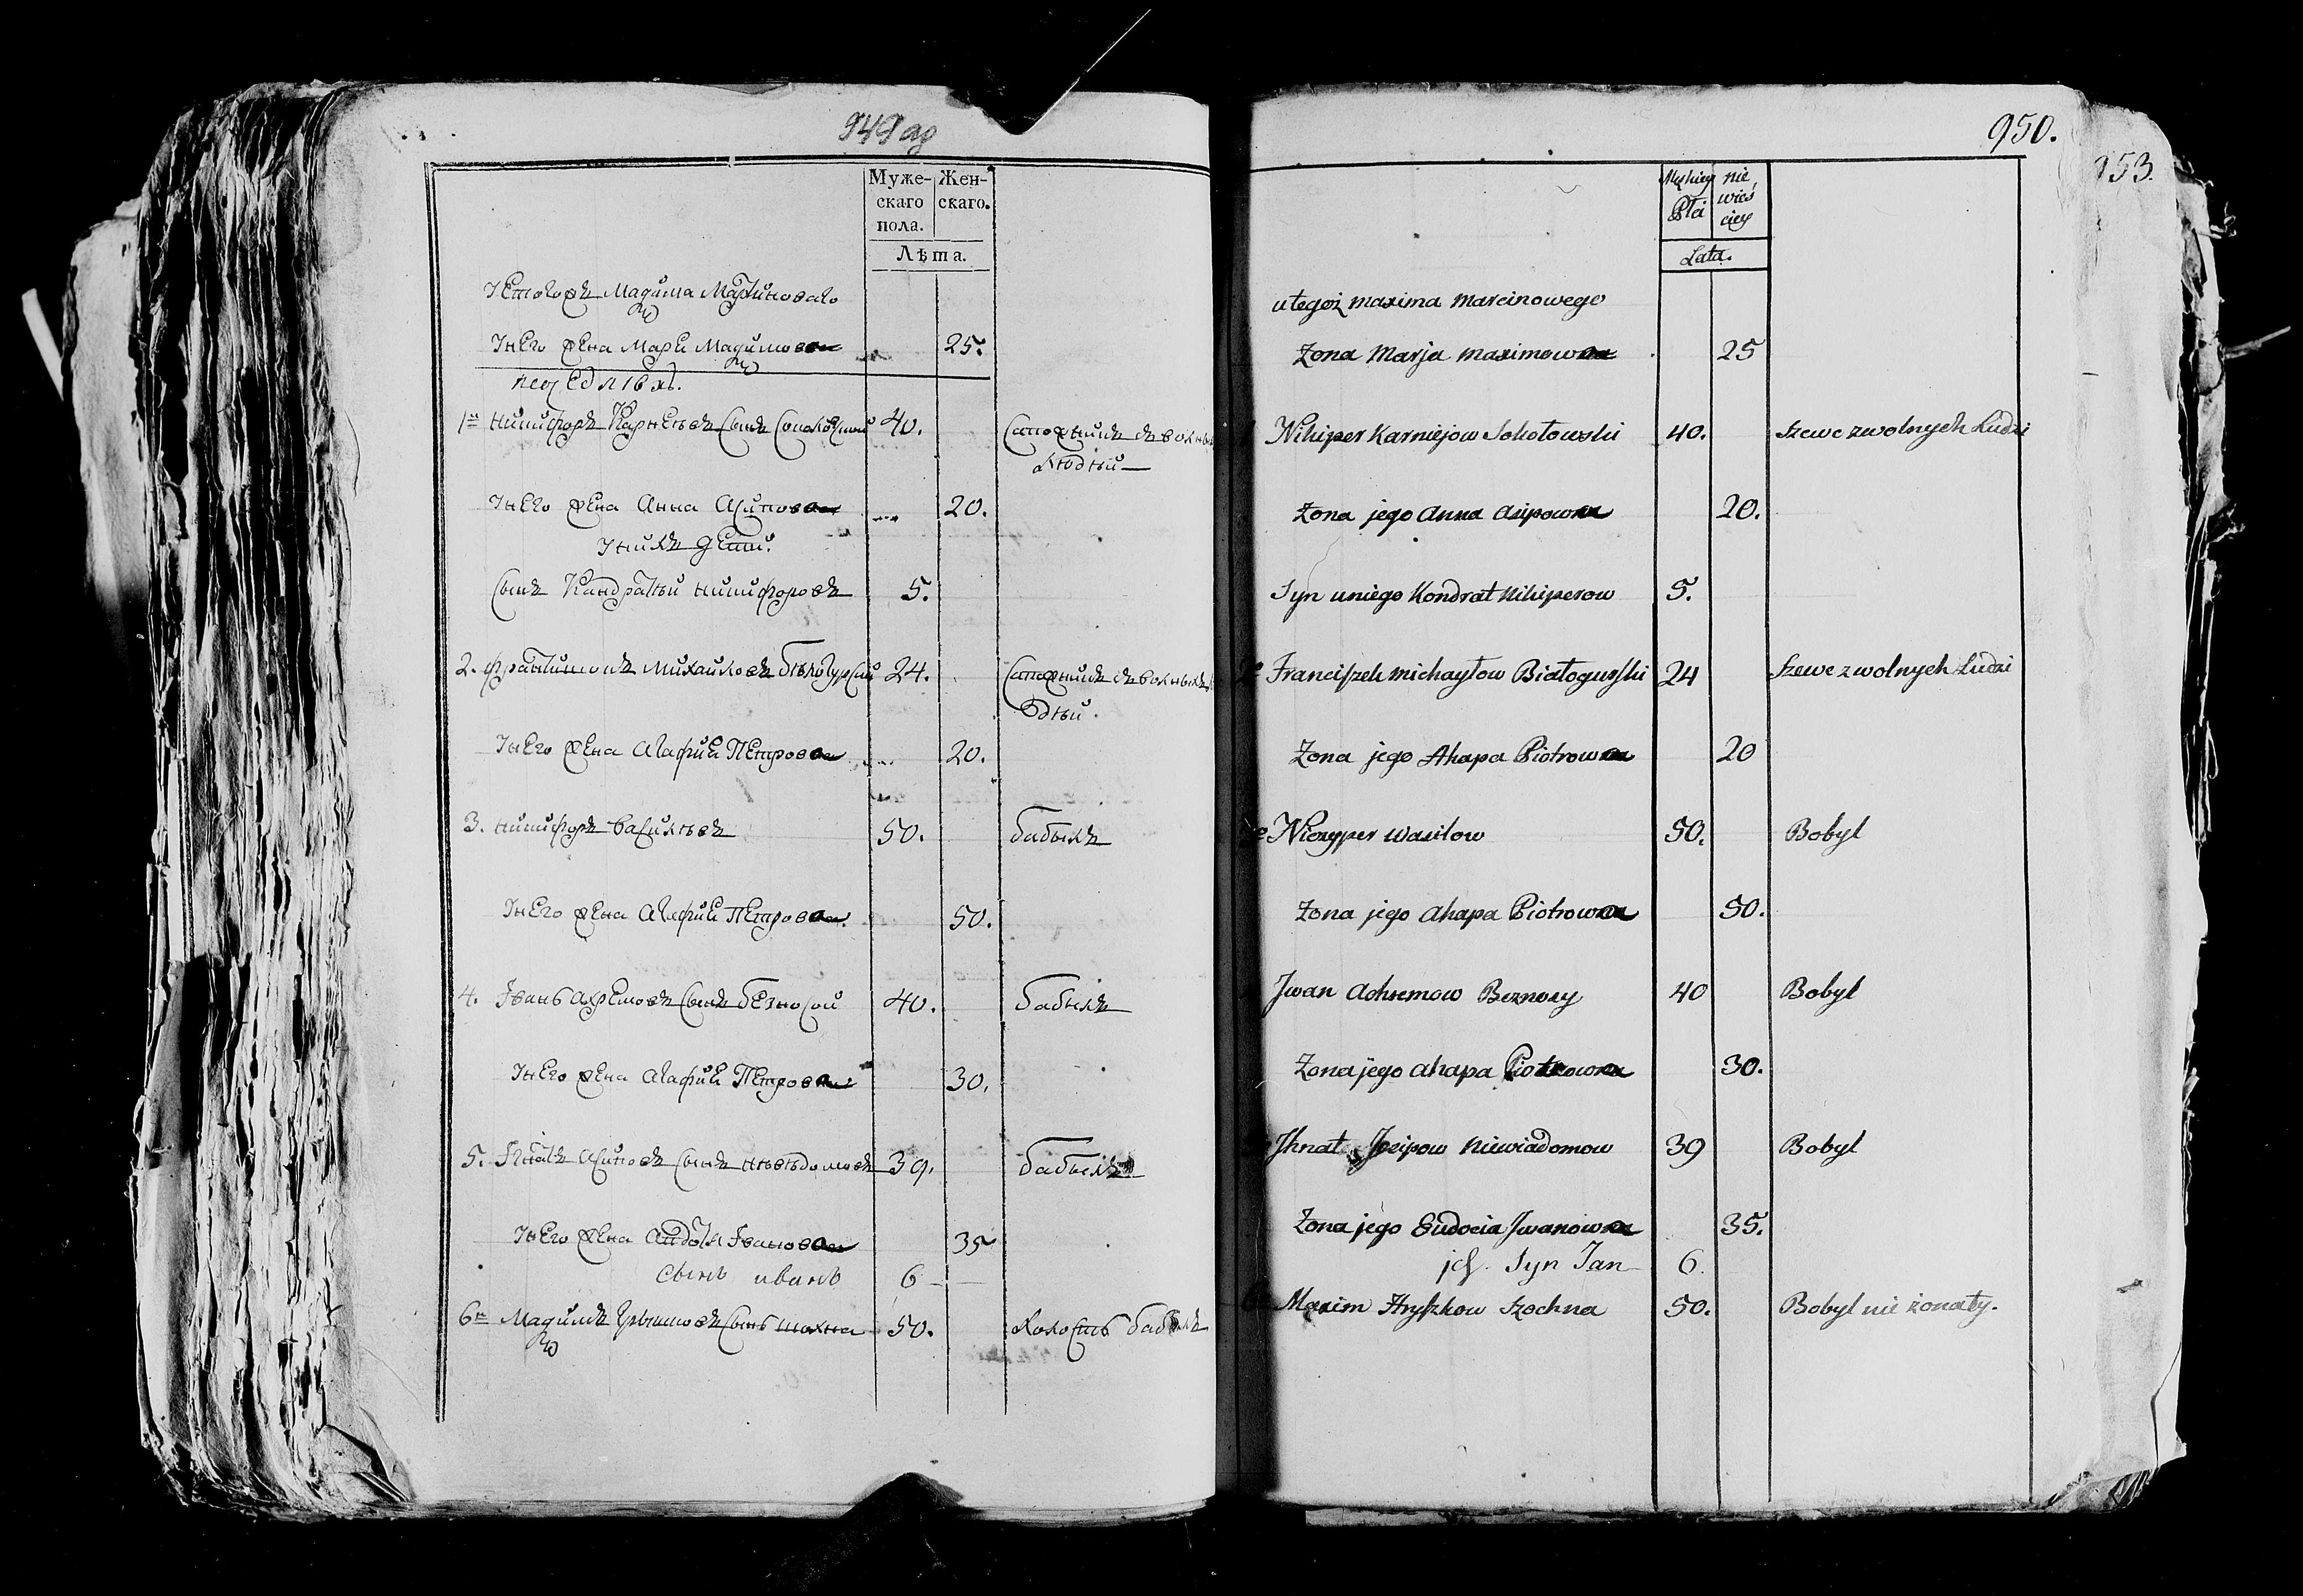 949 об
Муже-
скаго
пола.
Жен-
скаго.
Лѣта.
Утогожъ Мацима Марциноваго
Унего жена Маря Мацимова 25.
1й Никифоръ Карнѣевъ сынъ 40. Сапожникъ зволныхъ
людѣй
Унего жена Анна Асипова 20.
Унихъ дети.
Сынъ Кандратѣй Никифоровъ 5.
2. Францишокъ Михайловъ 24. Сапожникъ зволныхъ
Унего жена Агафия Петрова 20.
3. Никифоръ Василѣвъ 50. бабылъ
Унего жена Агафия Петрова 50.
4. Іванъ Ахремовъ сынъ безносой 40. бабылъ
Унего жена Агафия Петрова 30.
5. Ігнатъ Асиповъ сынъ невѣдомовъ 39. бабылъ
Унего жена Авдотя Іванова 35
сынъ иванъ 6
6й сынъ шохна 50. холостъ бабылъ
950.
953.
Męskiey
Płci
nie
wieś
ciey
Lata.
utegoż Maxima Marcinowego
Żona Marja Maximowna 25
Nikiper Karniejow Sokołowski 40. Szewc zwolnych Ludzi
Żona jego Anna Asipowna 20.
Syn uniego Kondrat Nikiperow 5.
2e Franciszek Michayłow Białoguski 24 Szewc zwolnych Ludzi
Żona jego Ahapa Piotrowna 20
Wasilow 50. Bobyl
Żona jego Ahapa Piotrowna 50.
Jwan Achremow Beznosy 40 Bobyl
Żona jego Ahapa Piotrowna 30.
Jhnat Josipow Niewiadomow 39 Bobyl
Żona jego Eudocia Jwanowna 35.
ich Syn Jan 6.
Maxim Hryszkow Szochna 50. Bobyl nie żonaty.